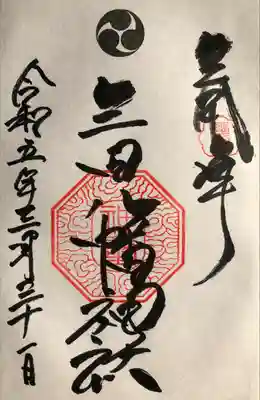 奉拝
三田八幡神社
令和五年三月三十一日